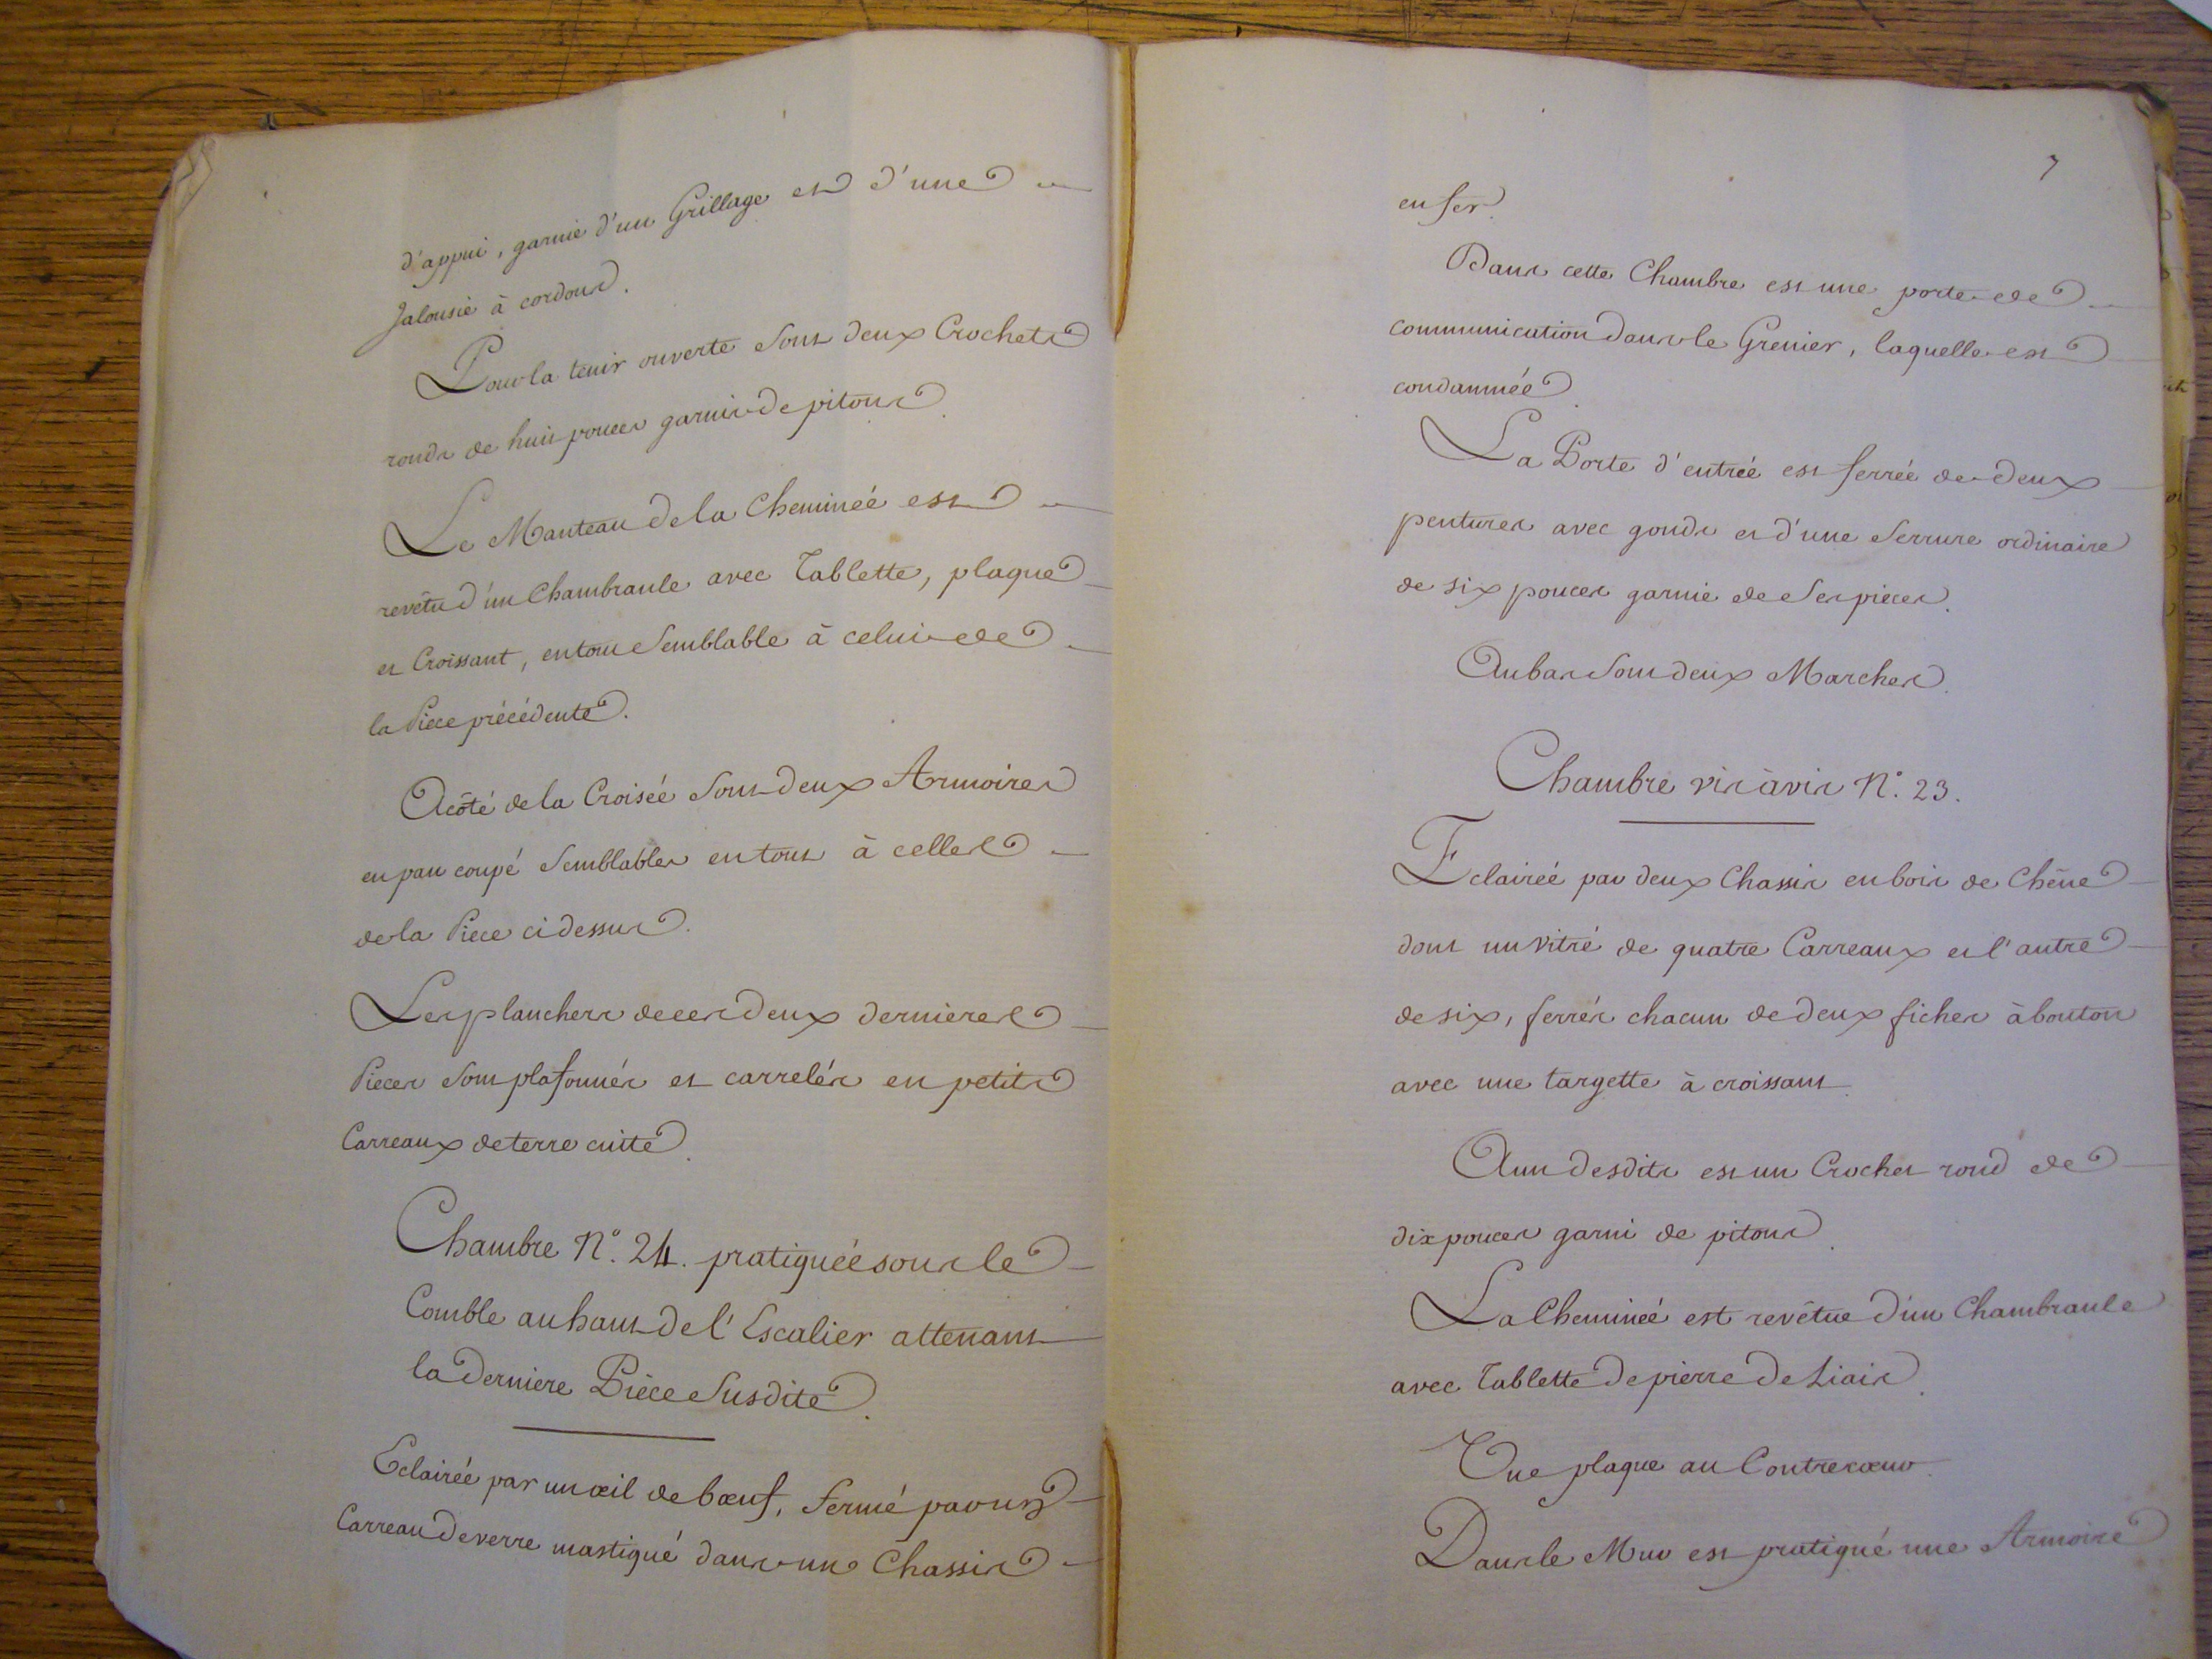 d'appui, garnie d'un Grillage et d'une
Jalousie à cordons.
Pour la tenir ouverte sont deux Crochets
ronds de huit pouces garnis de pitons.
Le Manteau de la Cheminée est
revêtu d'un Chambranle avec Tablette, plaque
et Croissant, en tout semblable à celui de
la Piece précédente.
A côté de la Croisée sont deux Armoires
en pan coupé semblables en tout à celles
de la Piece ci dessus.
Les planchers de ces deux dernieres
Pieces sont plafonnés et carrelés en petits
Carreaux de terre cuite.
Chambre N°. 24. pratiquée sous le
Comble au haut de l'Escalier attenant
la Derniere Piéce Susdite.
Eclairée par un œil de bœuf, fermé par un
Carreau de verre mastiqué dans un Chassis
7
en fer.
Dans cette Chambre est une porte de
communication dans le Grenier, laquelle est
condamnée.
La Porte d'entrée est ferrée de deux
pentures avec gonds et d'une Serrure ordinaire
de six pouces garnie de Ses pieces.
Au bas sont deux Marches.
Chambre vis à vis N°. 23.
Eclairée par deux Chassis en bois de Chêne
dont un vitré de quatre Carreaux et l'autre
de six, ferrés chacun de deux fiches à bouton
avec une targette à croissant.
A un desdits est un Crochet rond de
dix pouces garni de pitons.
La Cheminée est revêtue d'un Chambranle
avec Tablette de pierre de Liais.
Une plaque au Contrecœur.
Dans le Mur est pratiqué une Armoire